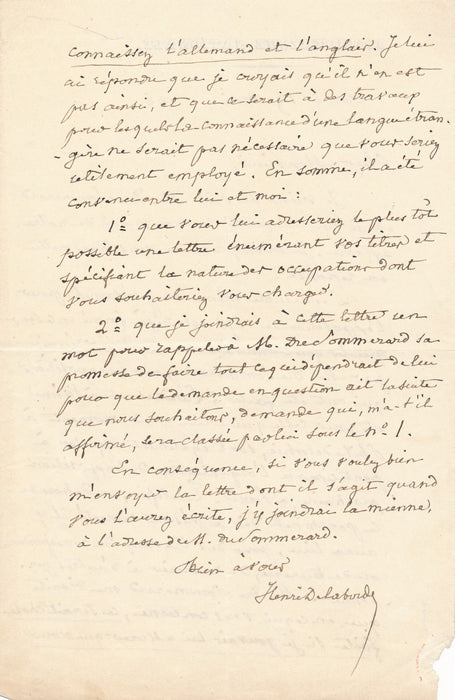 connaissez l'allemand et l'anglais. Je lui
ai répondre que je croyais qu'il n'en est
pas ainsi, et que ce serait à des travaux
pour lesquels la connaissance d'une langue étran-
-gère ne serait pas nécessaire que vous seriez
utilement employé. En somme, il a été
convenu entre lui et moi :
1º que vous lui adresseriez le plus tôt
possible une lettre énumérant vos titres et
spécifiant la nature des occupations dont
vous souhaiteriez vous charger.
2º que je joindrais à cette lettre un
mot pour rappeler à M. Du Sommerard sa
promesse de faire tout ce qui dépendrait de lui
pour que la demande en question ait la suite
que nous souhaitons, demande qui, m'a-t'il
affirmé, sera classée par lui sous le nº 1.
En conséquence, si vous voulez bien
m'envoyer la lettre dont il s'agit quand
vous l'aurez écrite, j'y joindrai la mienne,
à l'adresse de M. du Sommerard.
Bien à vous
Henri Delaborde